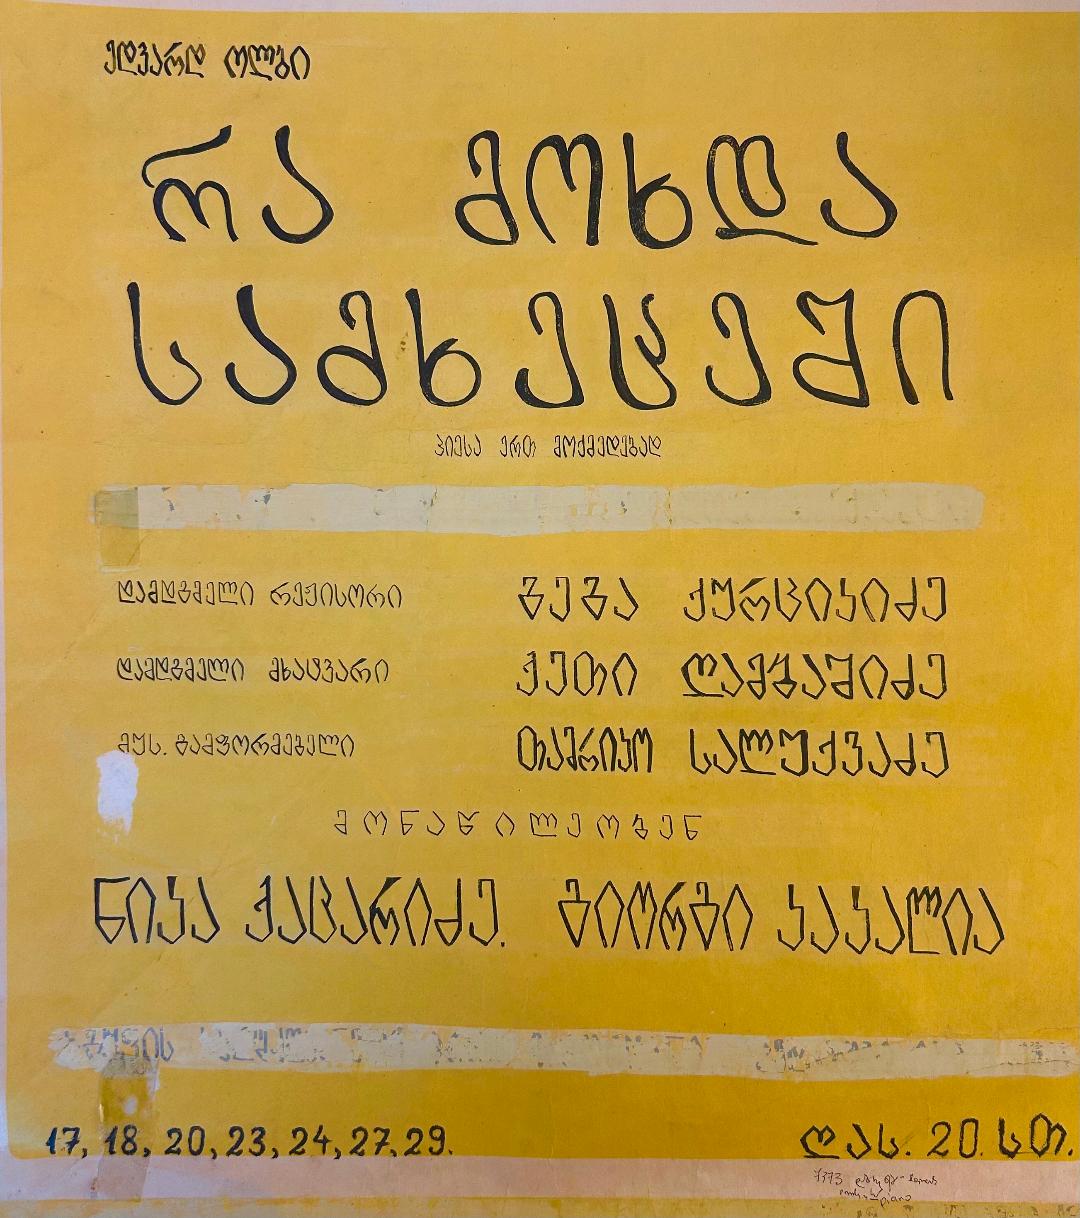 ედვარდ ოლბი
რა მოხდა
სამხეცეში
პიესა ერთ მოქმედებად
დამდგმელი რეჟისორი გეგა ქურციკიძე
დამდგმელი მხატვარი ქეთი ღამბაშიძე
მუს. გამფორმებელი თამრიკო სალუქვაძე
მონაწილეობენ
ნიკა ქაცარიძე. გიორგი კაკალია
17, 18, 20, 23, 24, 27, 29. დას. 20. სთ.